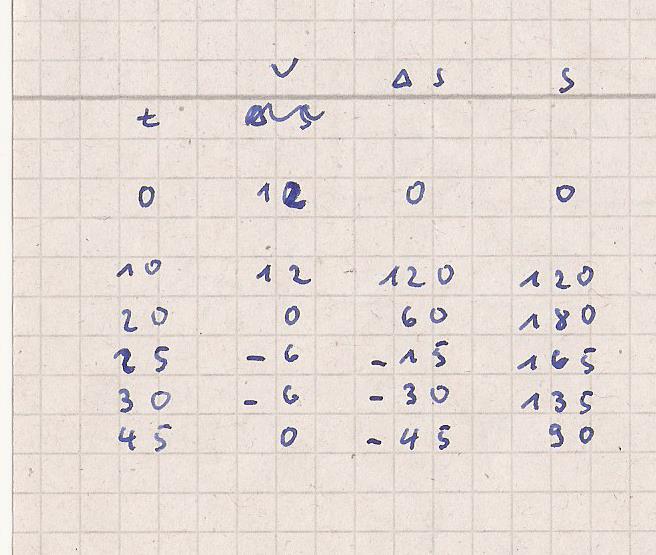 v Δ s s
t
0 12 0 0
10 12 120 120
20 0 60 180
25 -6 -15 165
30 -6 -30 135
45 0 -45 90